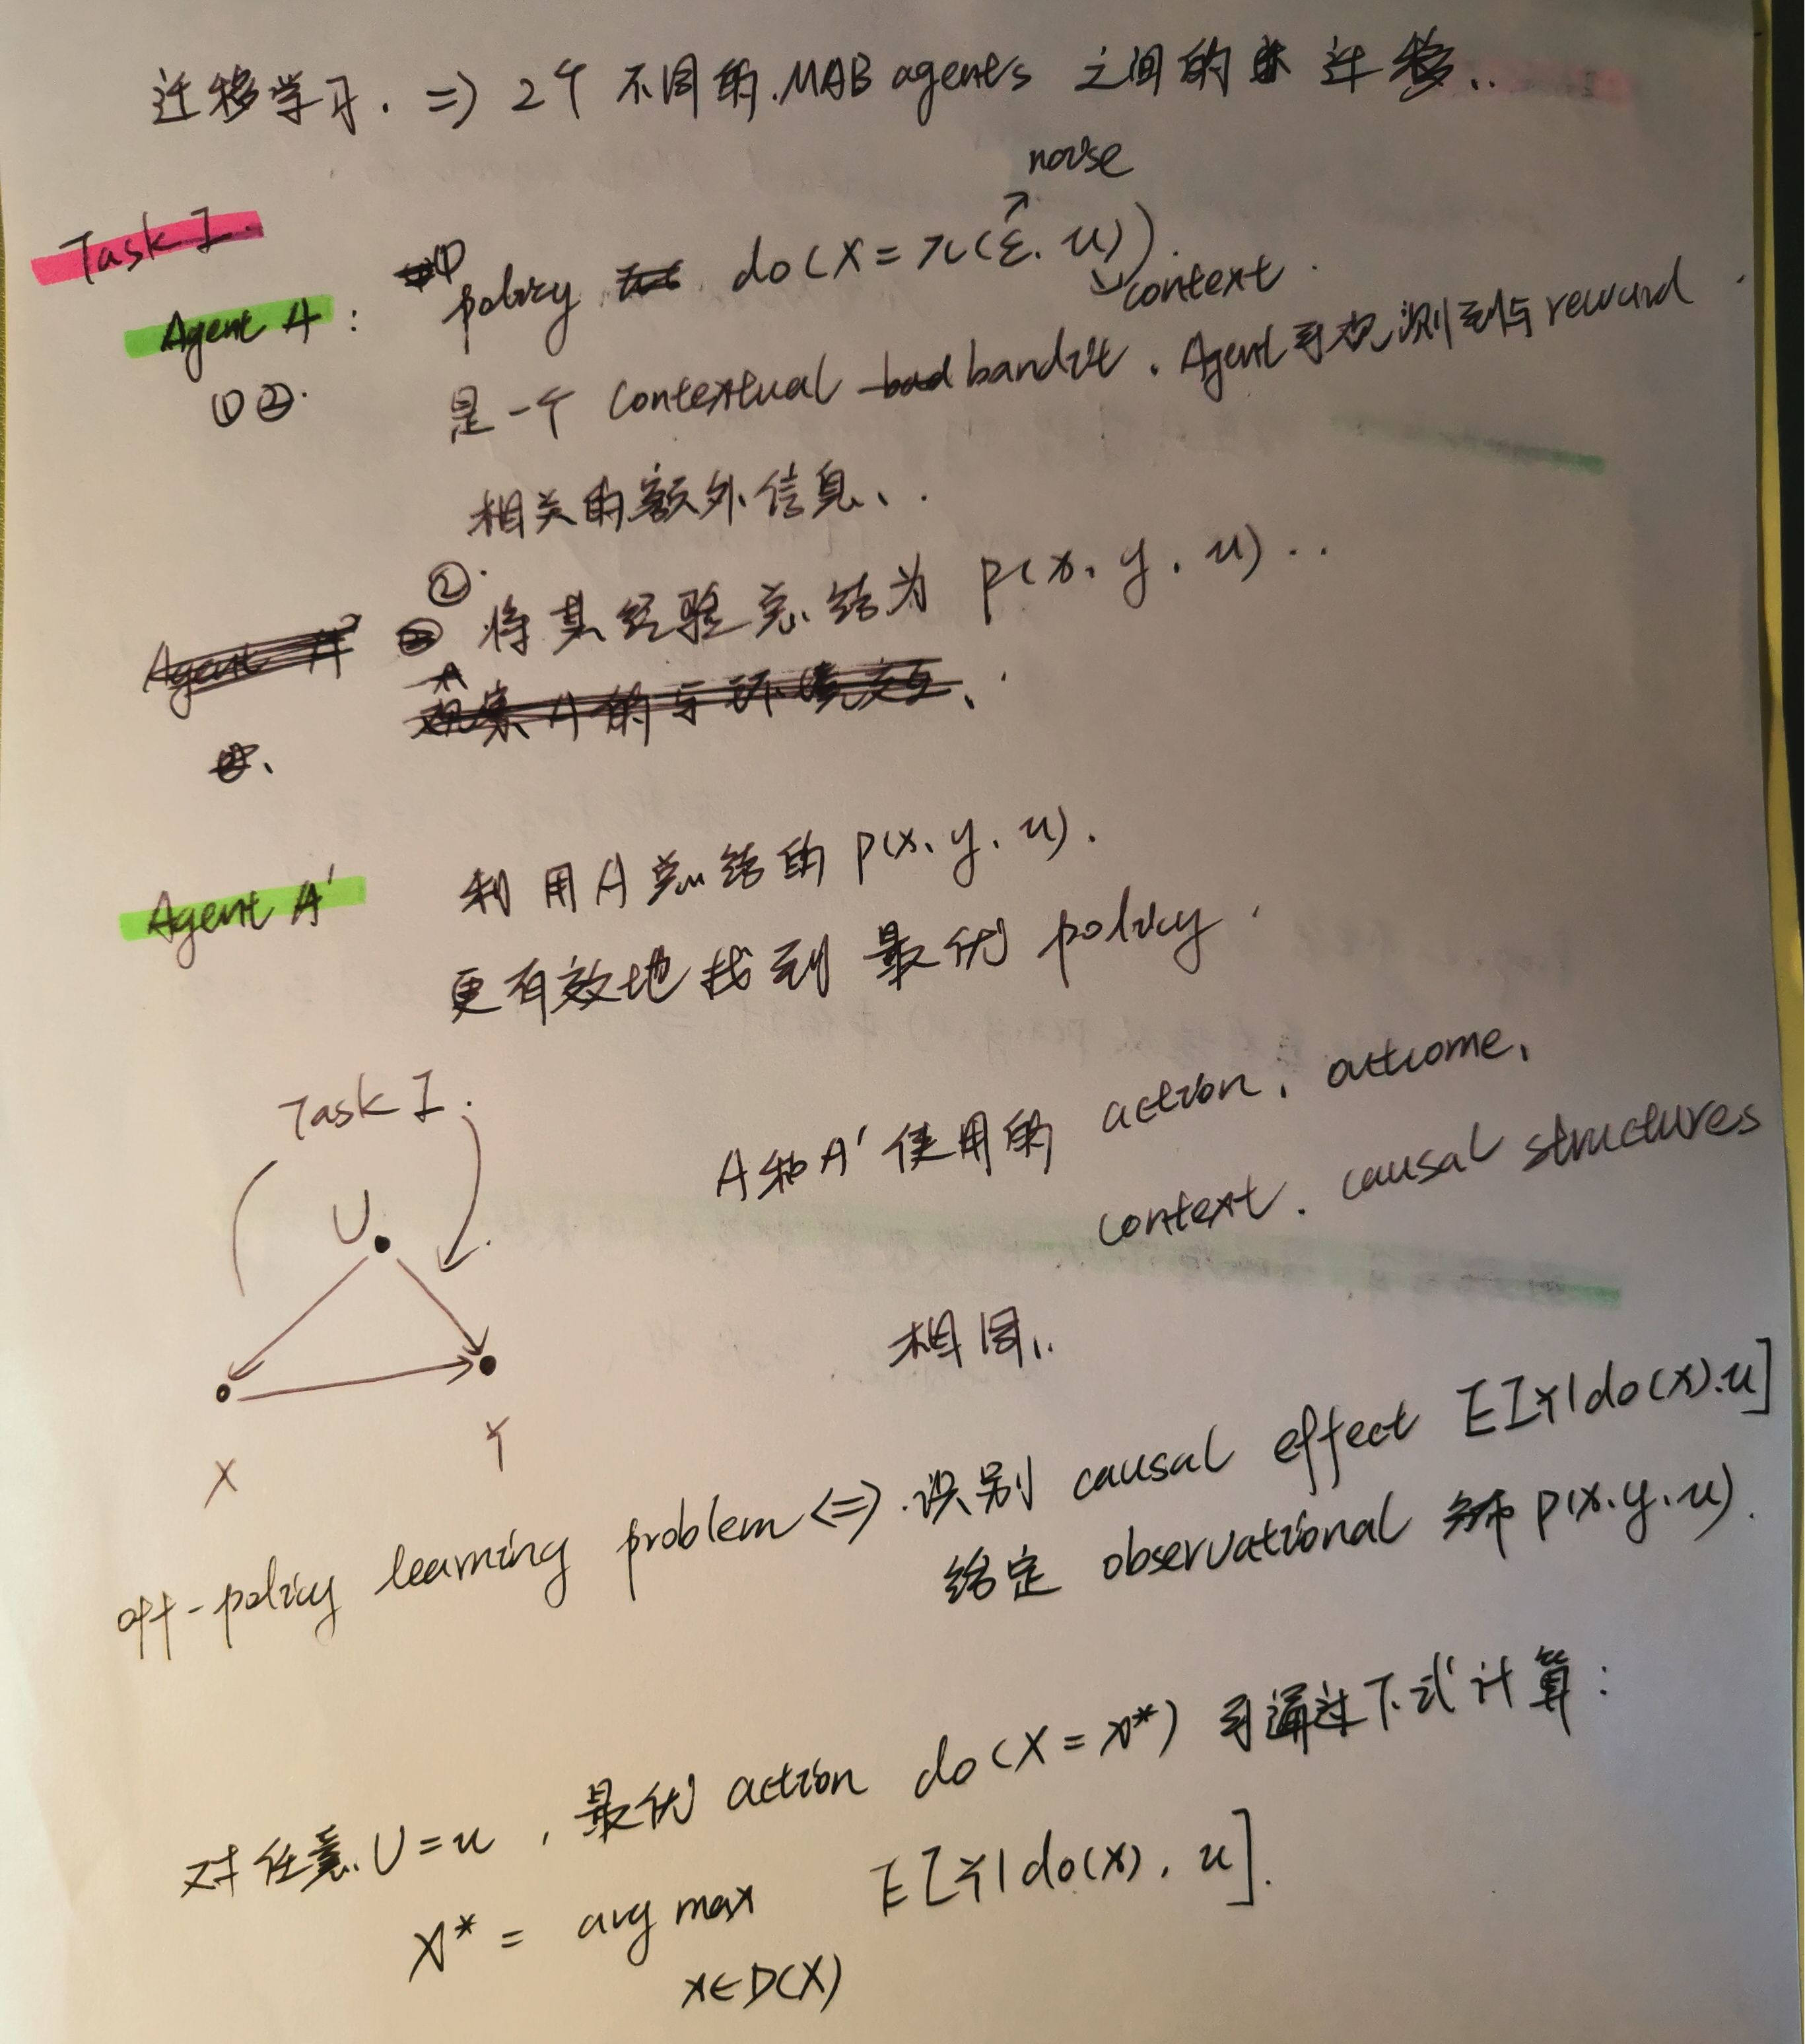 迁移学习. => 2个 不同的 MAB agents 之间的 迁移..
noise
Task I.
Agent A : ① policy do(X = π(ε. u)).
context.
①②. 是一个 contextual bandit . Agent可观测到与reward
相关的额外信息、.
② 将其经验总结为 P(x. y. u) ..
Agent A' 利用A总结的 P(x. y. u).
更有效地找到 最优 policy .
Task I.
A和A'使用的 action. outcome.
context. causal structures
U
相同..
X
Y
off-policy learning problem <=> 识别 causal effect E[Y|do(x).u]
给定 observational 分布 P(x.y.u).
对任意 U=u , 最优 action do(X = x*) 可通过下式计算:
x* = arg max E[Y|do(x). u].
x∈D(X)